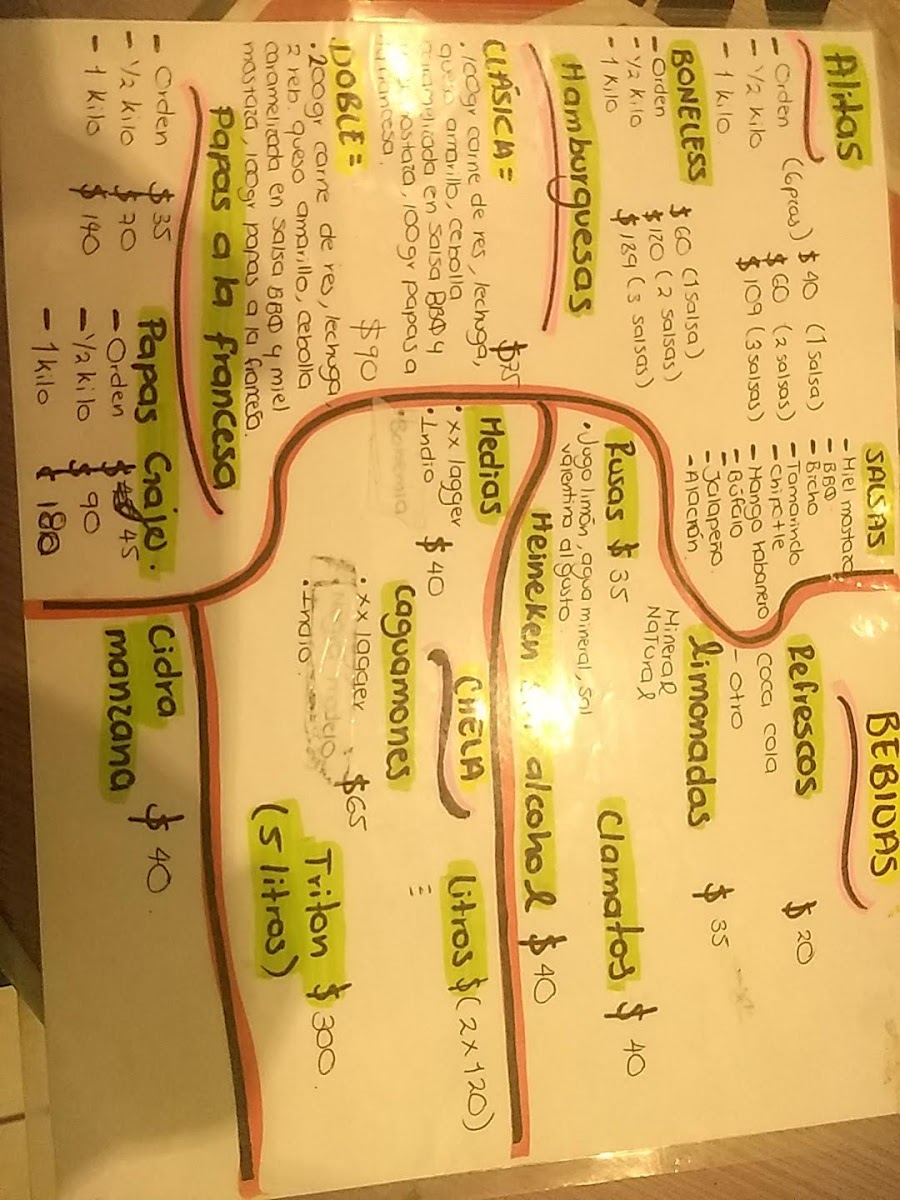 Alitas
- Orden (6pzas) $40 (1 salsa)
- 1/2 kilo $60 (2 salsas)
- 1 kilo $109 (3 salsas)
BONELESS
- Orden $60 (1 salsa)
- 1/2 kilo $120 (2 salsas)
- 1 kilo $189 (3 salsas)
Hamburguesas
CLÁSICA = $75
. 100gr carne de res, lechuga,
queso amarillo, cebolla
caramelizada en salsa BBQ y
mostaza, 100gr papas a
francesa.
DOBLE = $90
. 200gr carne de res, lechuga,
2 reb. queso amarillo, cebolla
caramelizada en salsa BBQ y miel
mostaza, 100gr papas a la francesa.
Papas a la francesa
- Orden $35
- 1/2 kilo $70
- 1 kilo $140
Papas Gajo.
- Orden $45
- 1/2 kilo $90
- 1 kilo $180
SALSAS
- Miel mostaza
- BBQ
- Bicho
- Tamarindo
- Chipotle
- Mango habanero
- Búfalo
- Jalapeño
- Ajacrán
BEBIDAS
Refrescos $20
coca cola
- otro
limonadas $35
Mineral
Natural
Rusas $35
• Jugo limón, agua mineral, sal
valentina al gusto
Clamatos $40
Heineken alcohol $40
CHELA
Medias $40
• xx lagger
• Indio
Litros $(2x120)
Caguamones $65
• xx lagger
• Indio
Triton $300
(5 litros)
Cidra $40
manzana